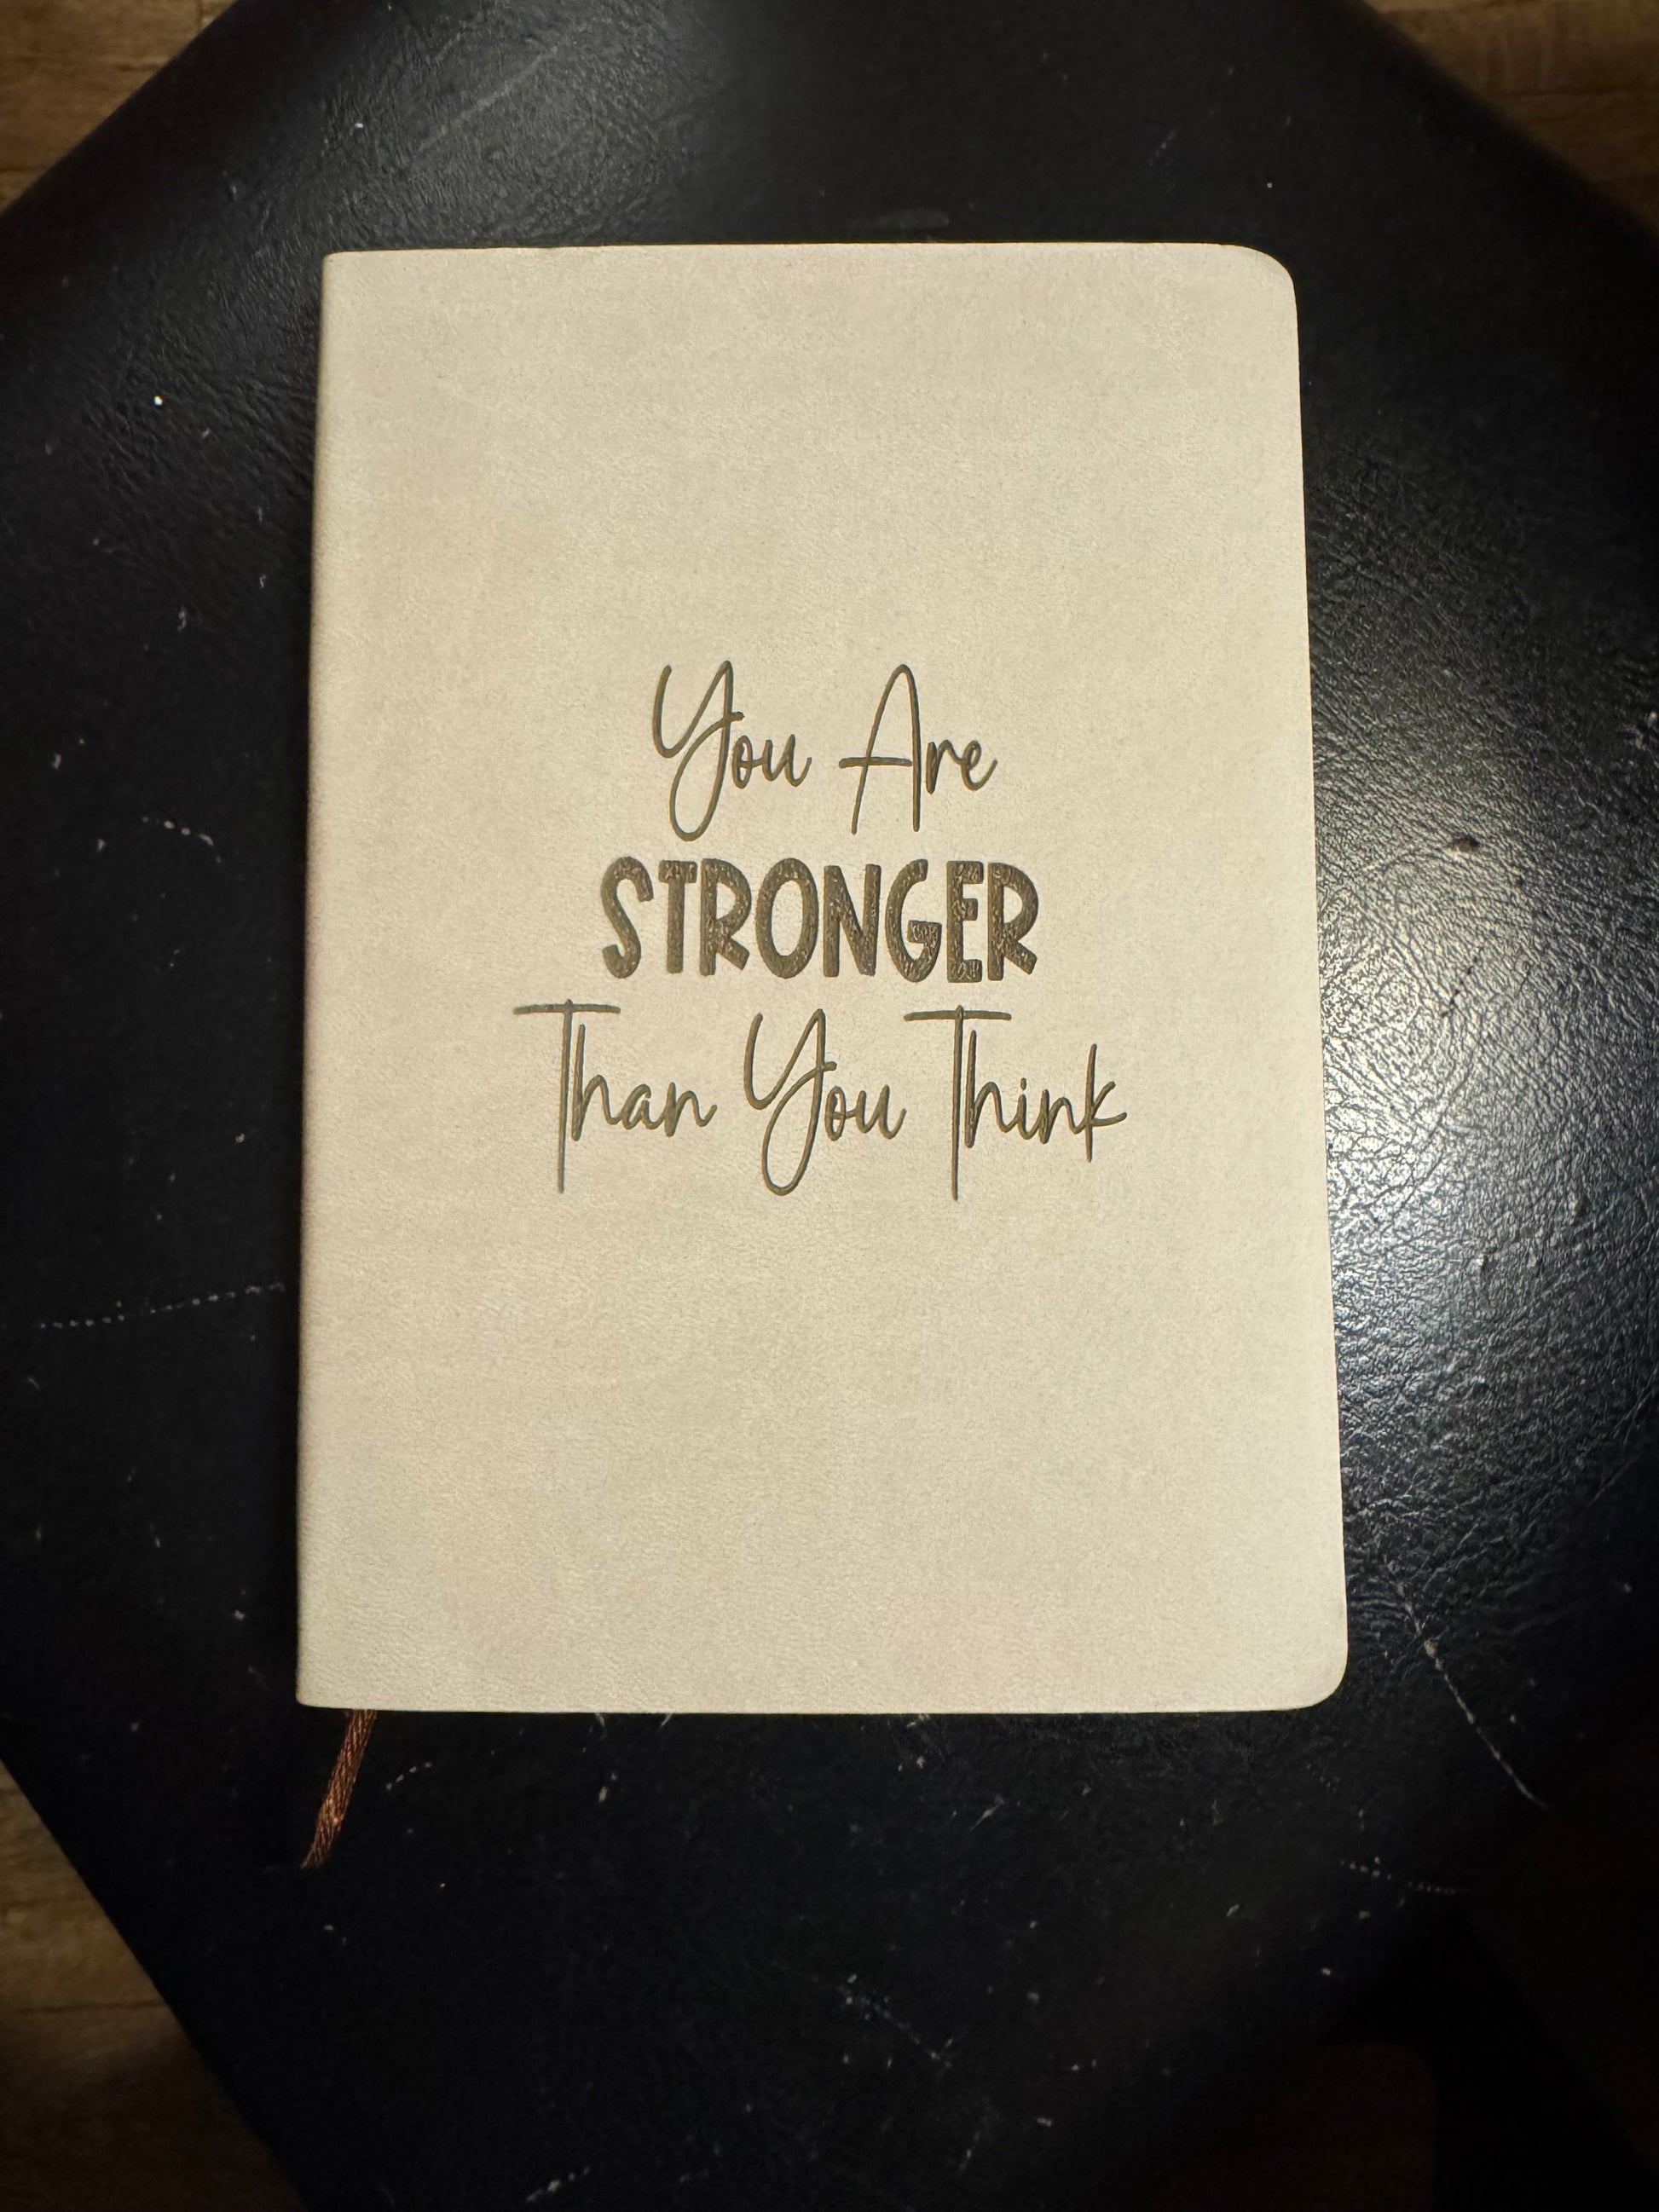 You Are
STRONGER
Than You Think